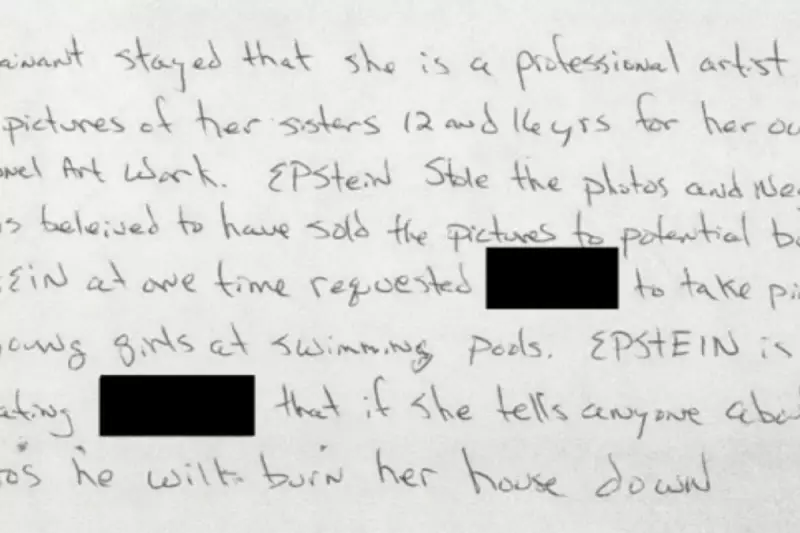 ainant stayed that she is a professional artist
pictures of her sisters 12 and 16 yrs for her ou
onel Art Work. EPStein Stole the photos and Neg
s beleived to have sold the pictures to potential b
EIN at one time requested to take pi
oung girls at swimming pools. EPStEIN is
ating that if she tells anyone abo
tos he will burn her house down